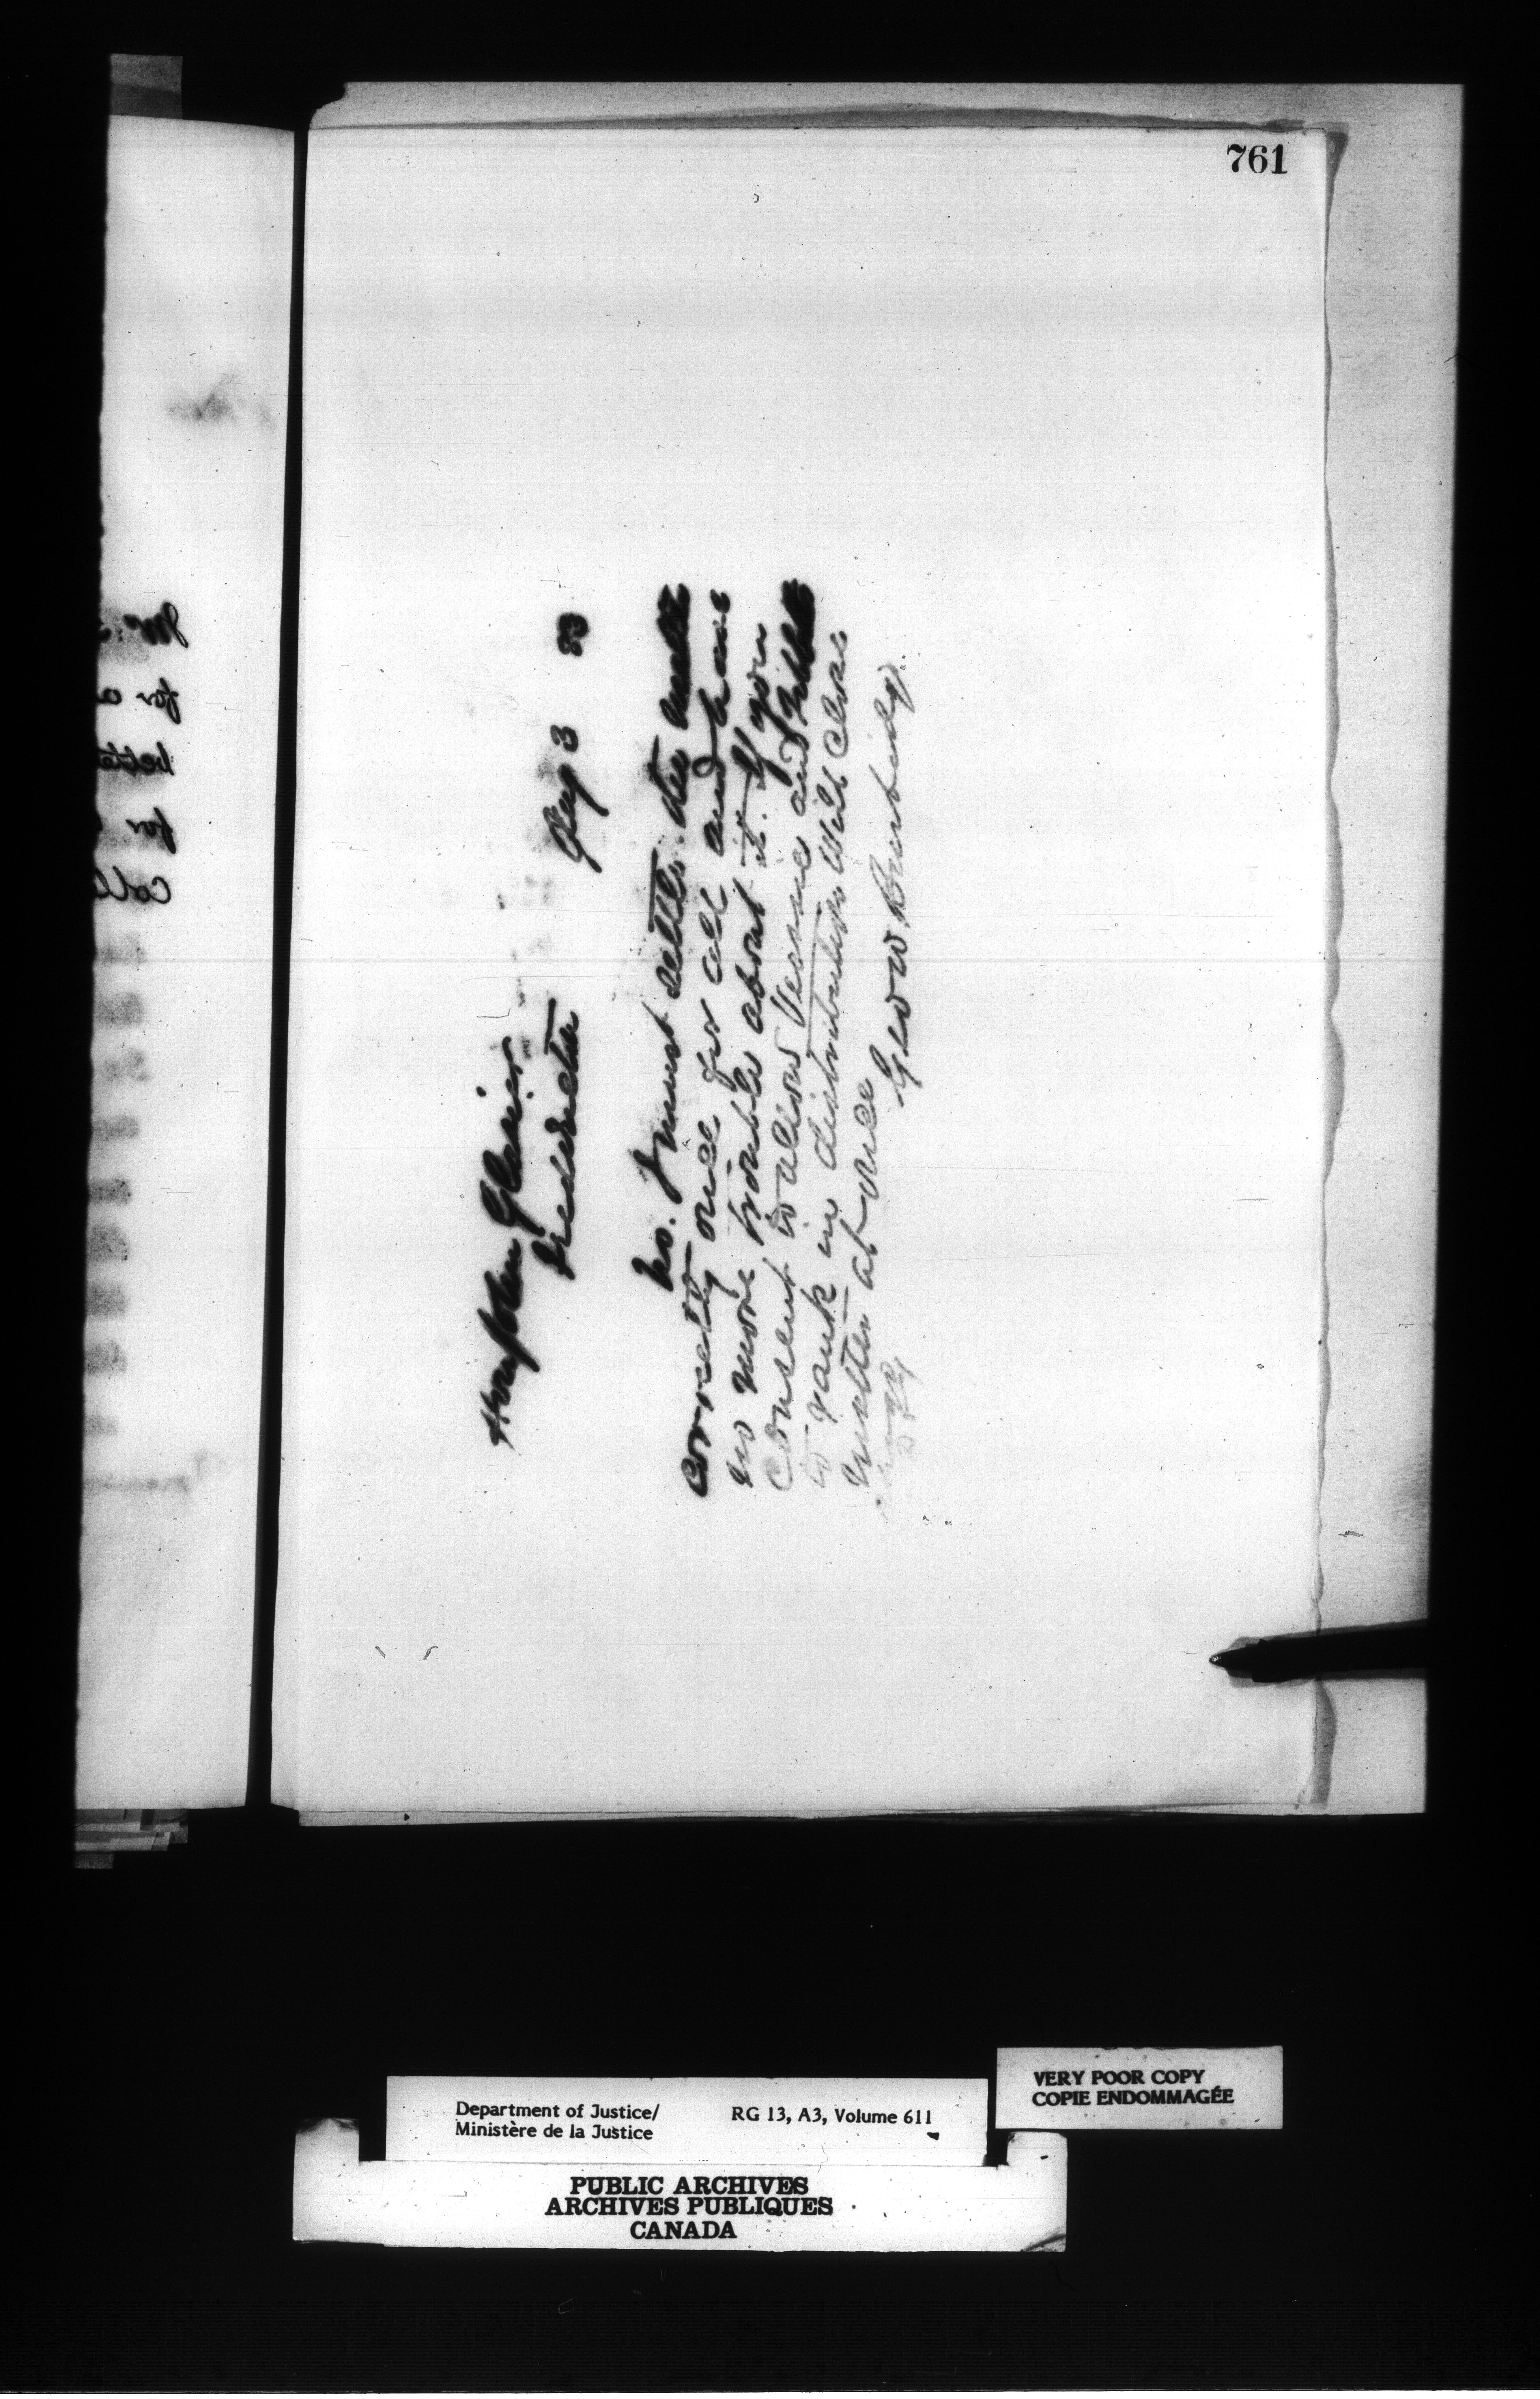 761
Hon John Glasier
Fredericton
Aug 3 83
No. I must settle the matter
correctly once for all and have
no more trouble about it. If you
consent to allow Vernon and
to rank in distribution will close
matter at once
Geo W Burbidge
Mr
for a
bette
for
Coll
Department of Justice/
Ministère de la Justice
RG 13, A3, Volume 611
VERY POOR COPY
COPIE ENDOMMAGÉE
PUBLIC ARCHIVES
ARCHIVES PUBLIQUES
CANADA